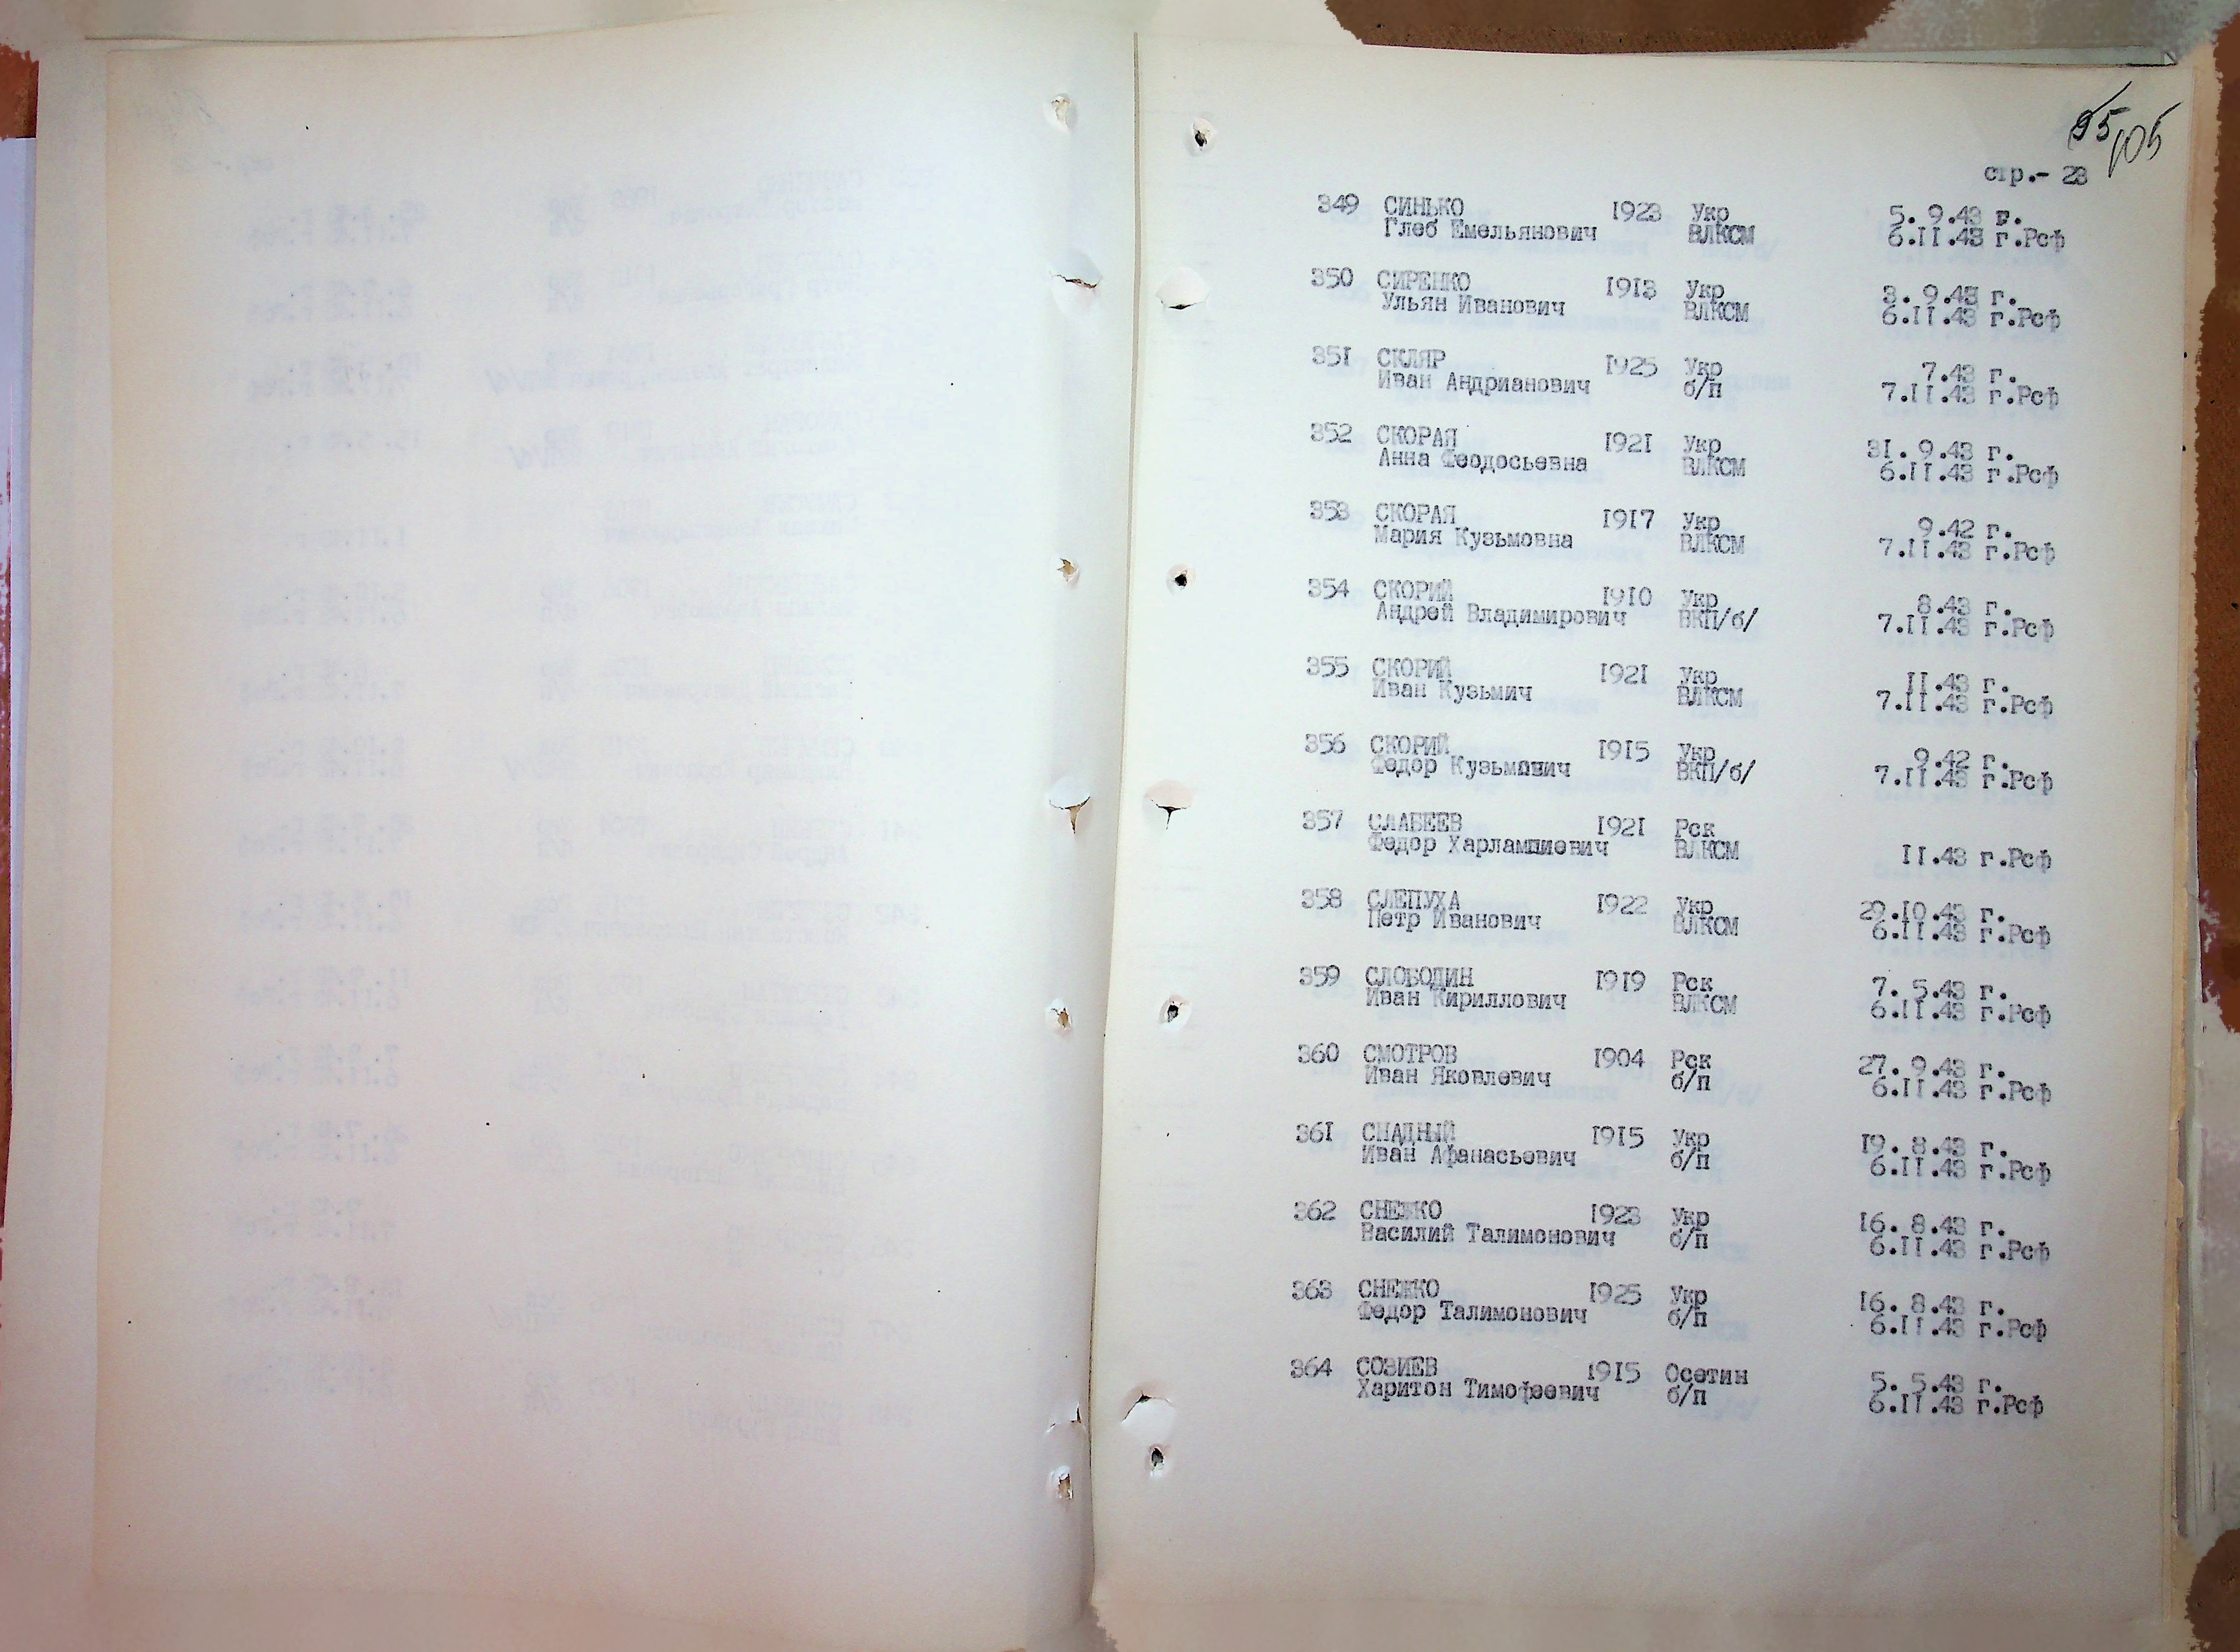 95
105
стр.- 23
349 СИНЬКО 1923 Укр 5. 9.43 г.
Глеб Емельянович ВЛКСМ 6.II.43 г.Рсф
350 СИРЕНКО I9I3 Укр 3. 9.43 г.
Ульян Иванович ВЛКСМ 6.II.43 г.Рсф
35I СКЛЯР I925 Укр 7.43 г.
Иван Андрианович б/п 7.II.43 г.Рсф
352 СКОРАЯ I92I Укр 3I. 9.43 г.
Анна Феодосьевна ВЛКСМ 6.II.43 г.Рсф
353 СКОРАЯ I9I7 Укр 9.42 г.
Мария Кузьмовна ВЛКСМ 7.II.43 г.Рсф
354 СКОРИЙ I9I0 Укр 8.43 г.
Андрей Владимирович ВКП/б/ 7.II.43 г.Рсф
355 СКОРИЙ I92I Укр II.43 г.
Иван Кузьмич ВЛКСМ 7.II.43 г.Рсф
356 СКОРИЙ I9I5 Укр 9.42 г.
Федор Кузьмович ВКП/б/ 7.II.43 г.Рсф
357 СЛАБЕЕВ I92I Рск
Федор Харлампиевич ВЛКСМ II.43 г.Рсф
358 СЛЕПУХА I922 Укр 29.I0.43 г.
Петр Иванович ВЛКСМ 6.II.43 г.Рсф
359 СЛОБОДИН I9I9 Рск 7. 5.43 г.
Иван Кириллович ВЛКСМ 6.II.43 г.Рсф
360 СМОТРОВ I904 Рск 27. 9.43 г.
Иван Яковлевич б/п 6.II.43 г.Рсф
36I СНАДНЫЙ I9I5 Укр I9. 8.43 г.
Иван Афанасьевич б/п 6.II.43 г.Рсф
362 СНЕЖКО I923 Укр I6. 8.43 г.
Василий Талимонович б/п 6.II.43 г.Рсф
363 СНЕЖКО I925 Укр I6. 8.43 г.
Федор Талимонович б/п 6.II.43 г.Рсф
364 СОЗИЕВ I9I5 Осетин 5. 5.43 г.
Харитон Тимофеевич б/п 6.II.43 г.Рсф